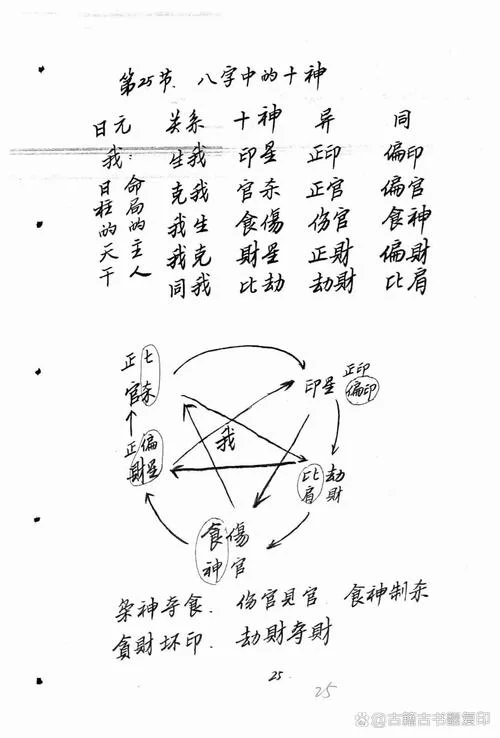 第25节、八字中的十神
日元 关系 十神 异 同
我: 生我 印星 正印 偏印
日柱的天干 命局的主人
克我 官杀 正官 偏官
我生 食傷 伤官 食神
我克 財星 正財 偏財
同我 比劫 劫財 比肩
正官 七杀
印星 正印 偏印
我
正財 偏星
比肩 劫財
食神 傷官
枭神夺食、伤官見官、食神制杀
貪財坏印、劫財夺財
25.
25
@古籍古书翻复印